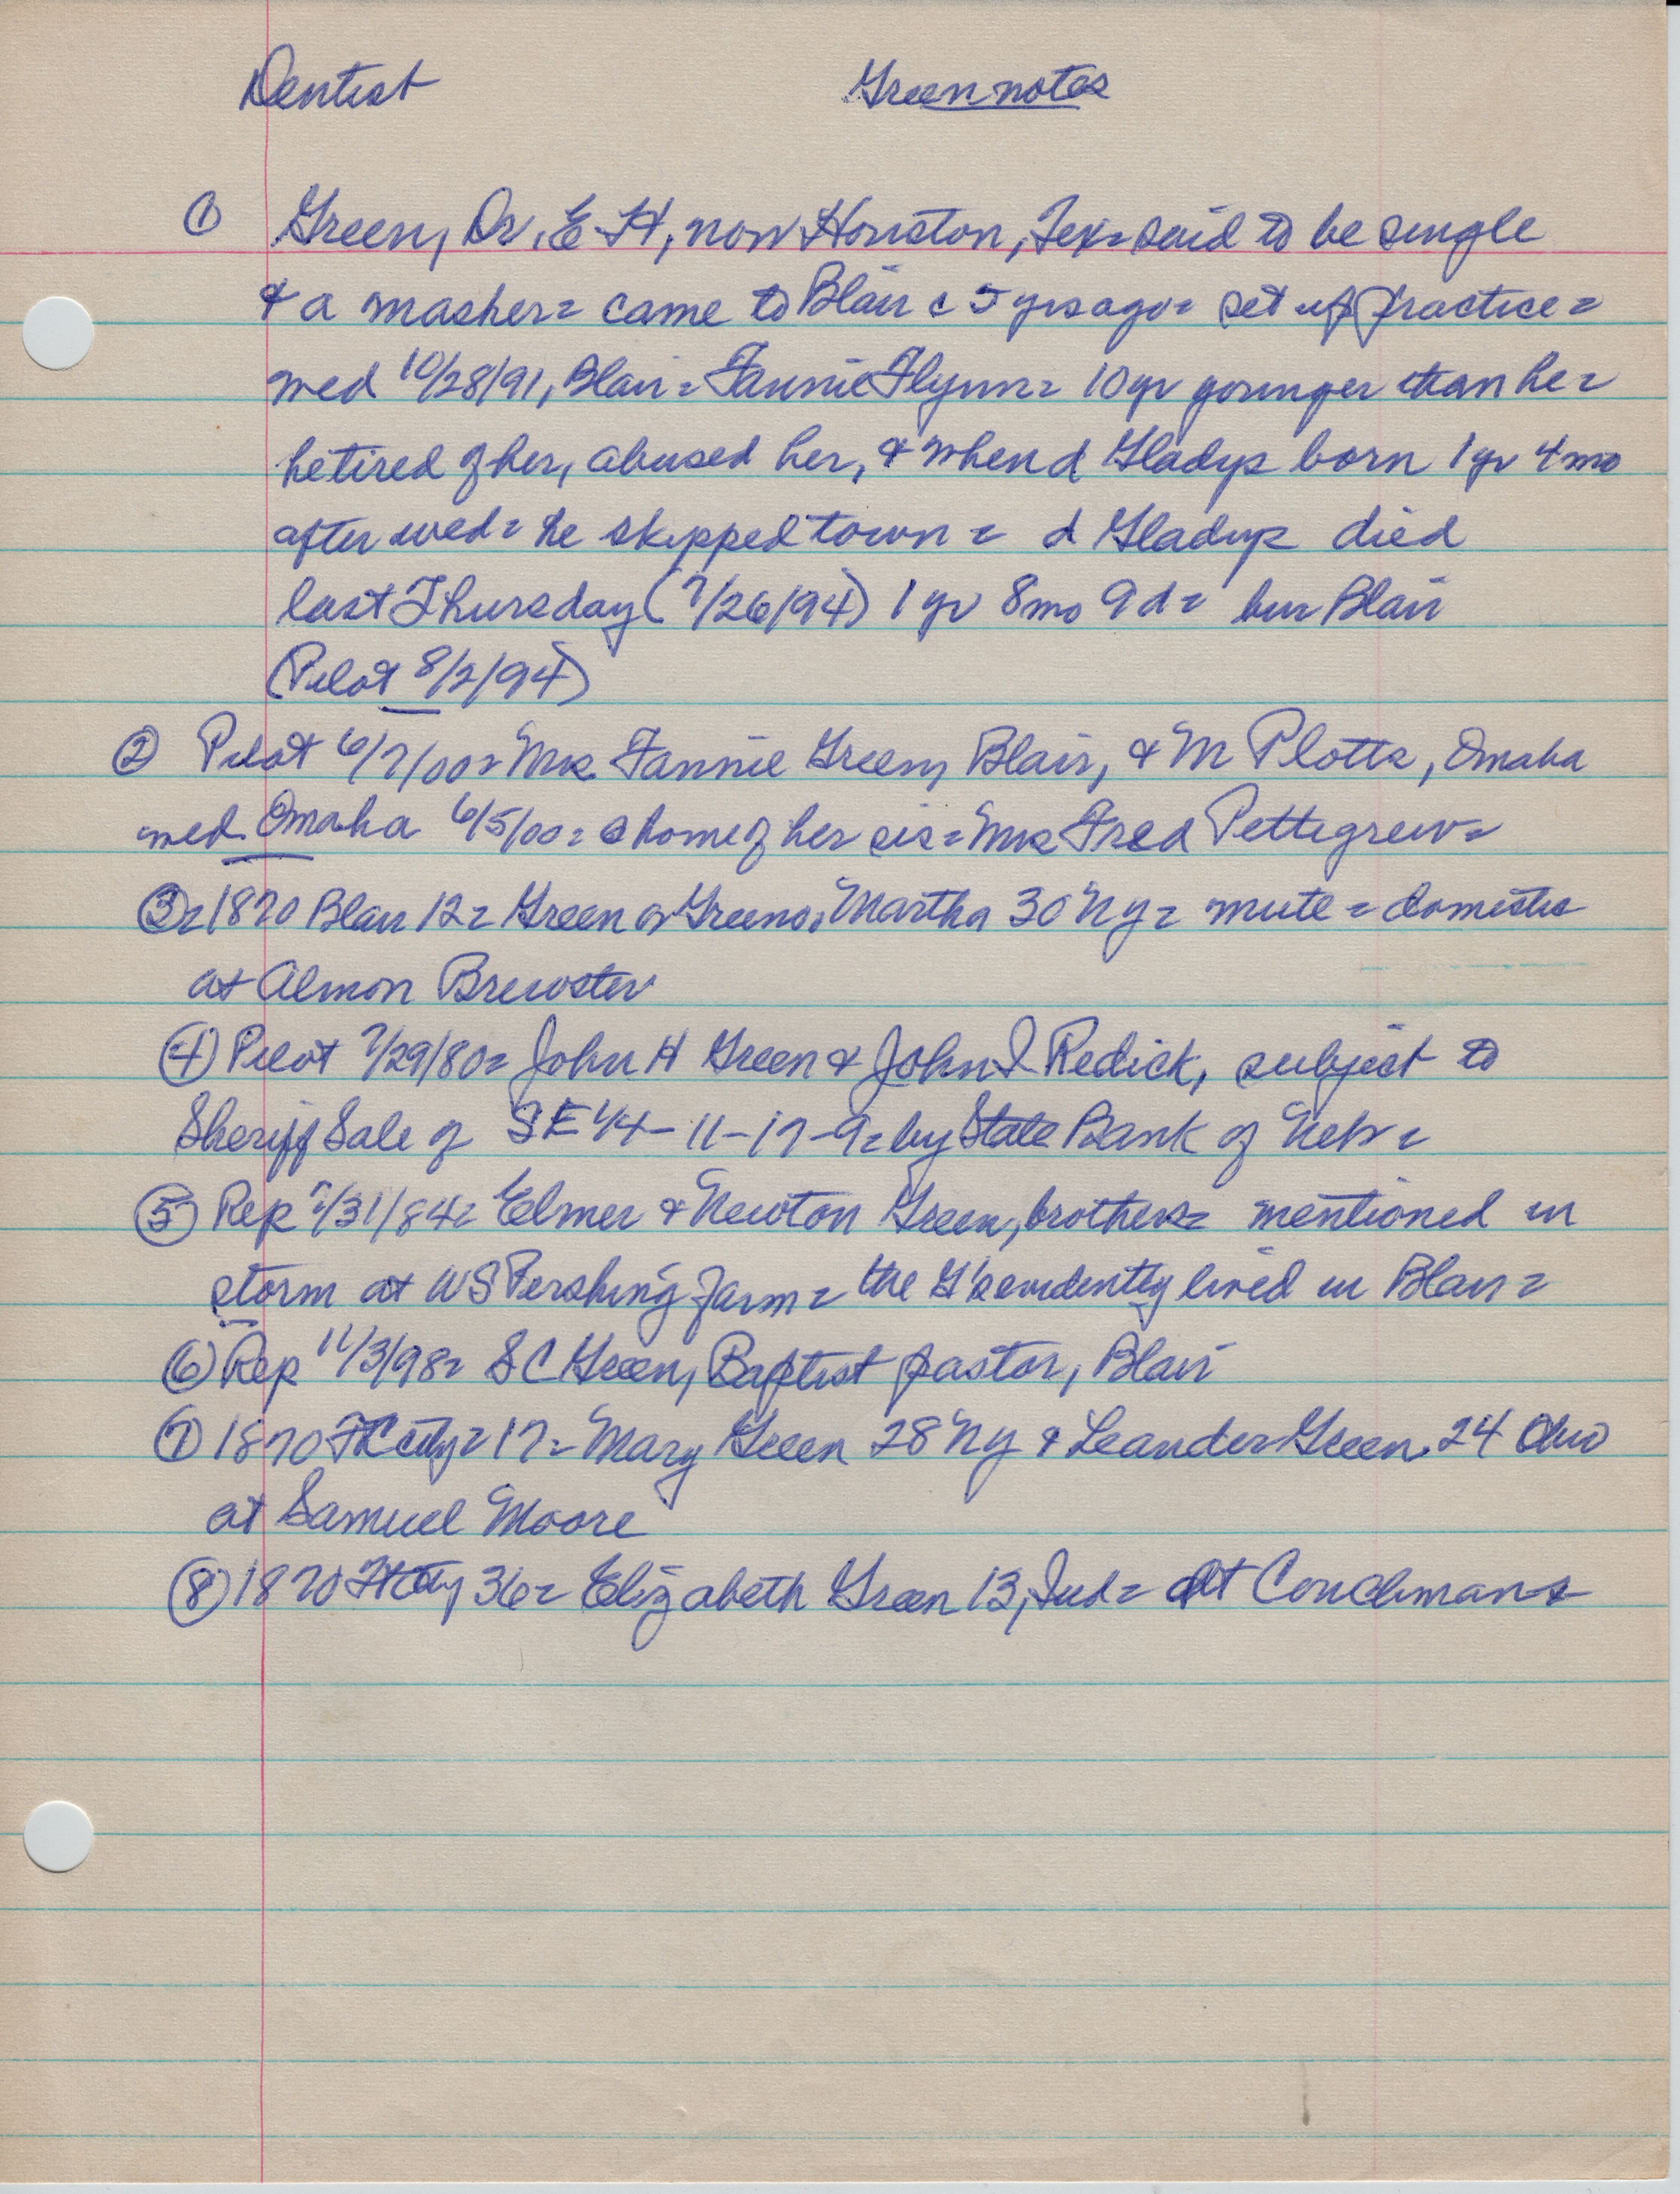 Dentist Green notes
① Green, Dr. E H, now Houston, Tex = said to be single
& a masher = came to Blair c 5 yrs ago = set up practice =
wed 10/28/91, Blair = Fannie Flynn = 10 yr younger than he =
he tired of her, abused her, & when d Gladys born 1 yr 4 mo
after wed = he skipped town = d Gladys died
last Thursday (7/26/94) 1 yr 8 mo 9 d = bur Blair
(Pilot 8/2/94)
② Pilot 6/7/00 = Mrs Fannie Green, Blair, & M Plotts, Omaha
wed Omaha 6/5/00 = @ home of her sis = Mrs Fred Pettegrew =
③ = 1870 Blair 12 = Green or Greeno, Martha 30 NY = mute = domestic
at Almon Brewster
④ Pilot 7/29/80 = John H Green & John I Redick, subject to
Sheriff Sale of SE 1/4 - 11-17-9 = by State Bank of Nebr =
⑤ Rep 7/31/84 = Elmer & Newton Green, brothers = mentioned in
storm at W S Pershing farm = the G's evidently lived in Blair =
⑥ Rep 11/3/98 = S C Green, Baptist pastor, Blair
⑦ 1870 Ft City = 17 = Mary Green 28 NY & Leander Green 24 Ohio
at Samuel Moore
⑧ 1870 Ft City 36 = Elizabeth Green 13, Ind = at